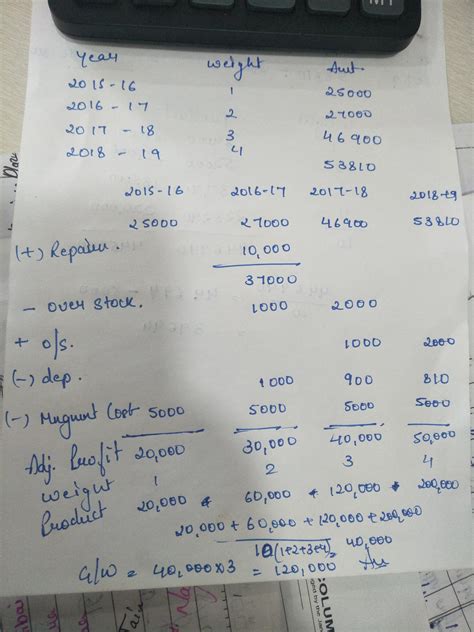 MT
Year weight Amt
2015-16 1 25000
2016-17 2 27000
2017-18 3 46900
2018-19 4 53810
2015-16 2016-17 2017-18 2018-19
25000 27000 46900 53810
(+) Repairs. 10,000
37000
- over stock. 1000 2000
+ o/s. 1000 2000
(-) dep. 1000 900 810
(-) Mngmnt Cost 5000 5000 5000 5000
Adj. Profit 20,000 30,000 40,000 50,000
weight 1 2 3 4
Product 20,000 + 60,000 + 120,000 + 200,000
20,000 + 60,000 + 120,000 + 200,000
10(1+2+3+4) 40,000
G/W = 40,000×3 = 120,000 Ans
COLUM